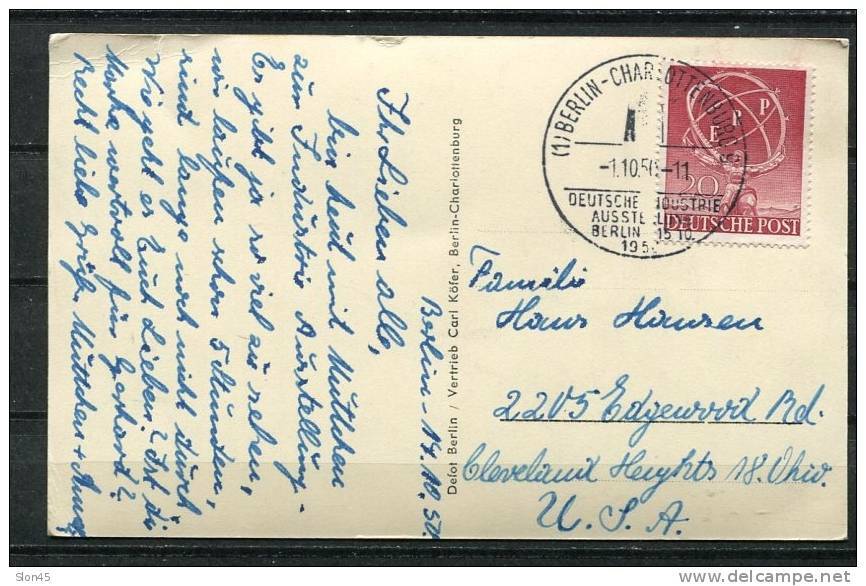 Berlin - 14.10.50.
Ihr Lieben alle,
bin heut mit Muttchen
zur Industrie Ausstellung.
Es gibt ja so viel zu sehen,
wir laufen schon 5 Stunden,
sind lange noch nicht durch.
Wie geht es Euch Lieben? Ist die
Marke wertvoll für Gerhard?
Recht liebe Grüße Muttchen +
Defot Berlin / Vertrieb Carl Köfer, Berlin-Charlottenburg
(1) BERLIN-CHARLOTTENBURG 5
-1.10.50-11
DEUTSCHE INDUSTRIE
AUSSTELLUNG
BERLIN 15.10.
195
E P P
20
DEUTSCHE POST
Familie
Hans Hansen
2205 Edgewood Rd.
Cleveland Heights 18. Ohio.
U. S. A.
Slon45
delcampe.net